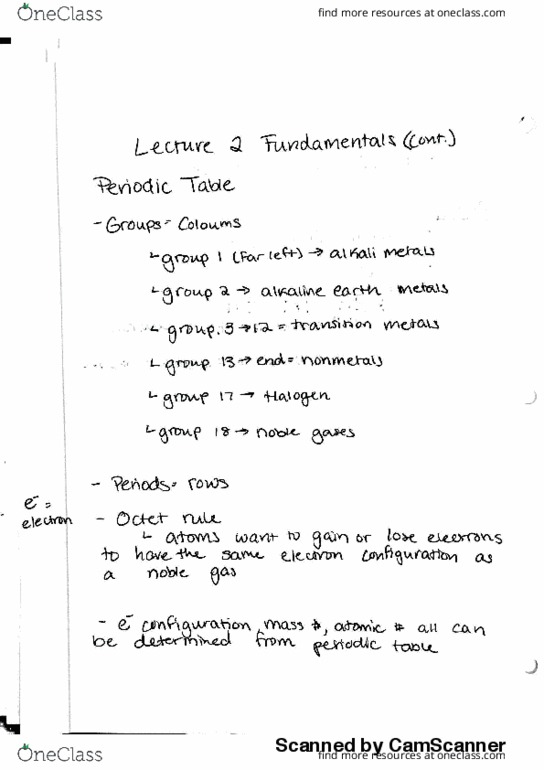 OneClass
find more resources at oneclass.com
Lecture 2 Fundamentals (Cont.)
Periodic Table
- Groups= Coloums
↳ group 1 (Far left) → alkali metals
↳ group 2 → alkaline earth metals
↳ group. 3→12 = transition metals
↳ group 13→ end= nonmetals
↳ group 17 → Halogen
↳ group 18 → noble gases
- Periods= rows
e⁻ =
electron
- Octet rule
↳ atoms want to gain or lose electrons
to have the same electron configuration as
a noble gas
- e⁻ configuration, mass #, atomic # all can
be determined from periodic table
Scanned by CamScanner
OneClass
find more resources at oneclass.com